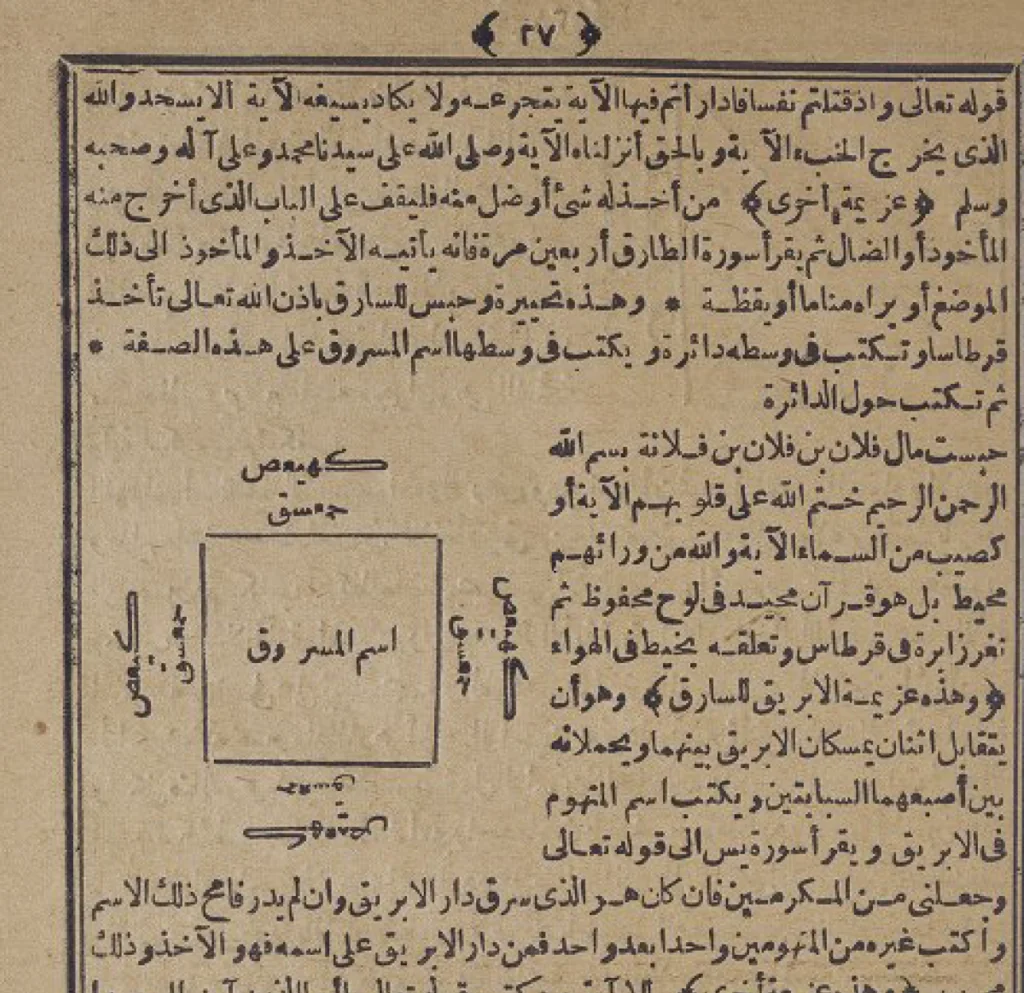 ﴿ ٢٧ ﴾
قوله تعالى واذقتلتم نفسافادارأتم فيهاالآية يتجرعه ولا يكاديسيغه الآية ألايسجدوالله
الذى يخرج الخبء الآية وبالحق أنزلناه الآية وصلى الله على سيدنامحمدوعلى آله وصحبه
وسلم ﴿عزيمة أخرى﴾ من أخذله شئ أوضل منه فليقف على الباب الذى أخرج منه
المأخوذأو الضال ثم يقرأسورة الطارق أربعين مرة فانه يأتيه الآخذوالمأخوذ الى ذلك
الموضع أو يراه مناماأويقظة * وهذه تحييرة وحبس للسارق باذن الله تعالى تأخذ
قرطاساوتكتب فى وسطه دائرة ويكتب فى وسطهااسم المسروق على هذه الصفة *
ثم تكتب حول الدائرة
حبست مال فلان بن فلان بن فلانة بسم الله
الرحمن الرحيم ختم الله على قلوبهم الآية أو
كصيب من السماء الآية والله من ورائهم
محيط بل هوقرآن مجيد فى لوح محفوظ ثم
تغرزابرة فى قرطاس وتعلقه بخيط فى الهواء
﴿وهذه عزيمة الابريق للسارق﴾ وهوأن
يتقابل اثنان يمسكان الابريق بينهماويحملانه
بين أصبعهما السبابتين ويكتب اسم المتهوم
فى الابريق ويقرأسورة يس الى قوله تعالى
كهيعص
حمعسق
كهيعص
حمعسق
اسم المسروق
حمعسق
كهيعص
حمعسق
كهيعص
وجعلنى من المكرمين فان كان هو الذى سرق دار الابريق وان لم يدر فامح ذلك الاسم
واكتب غيره من المتهومين واحدابعدواحد فمن دارالابريق على اسمه فهو الآخذوذلك
﴿وهذه عزيمة أخرى﴾